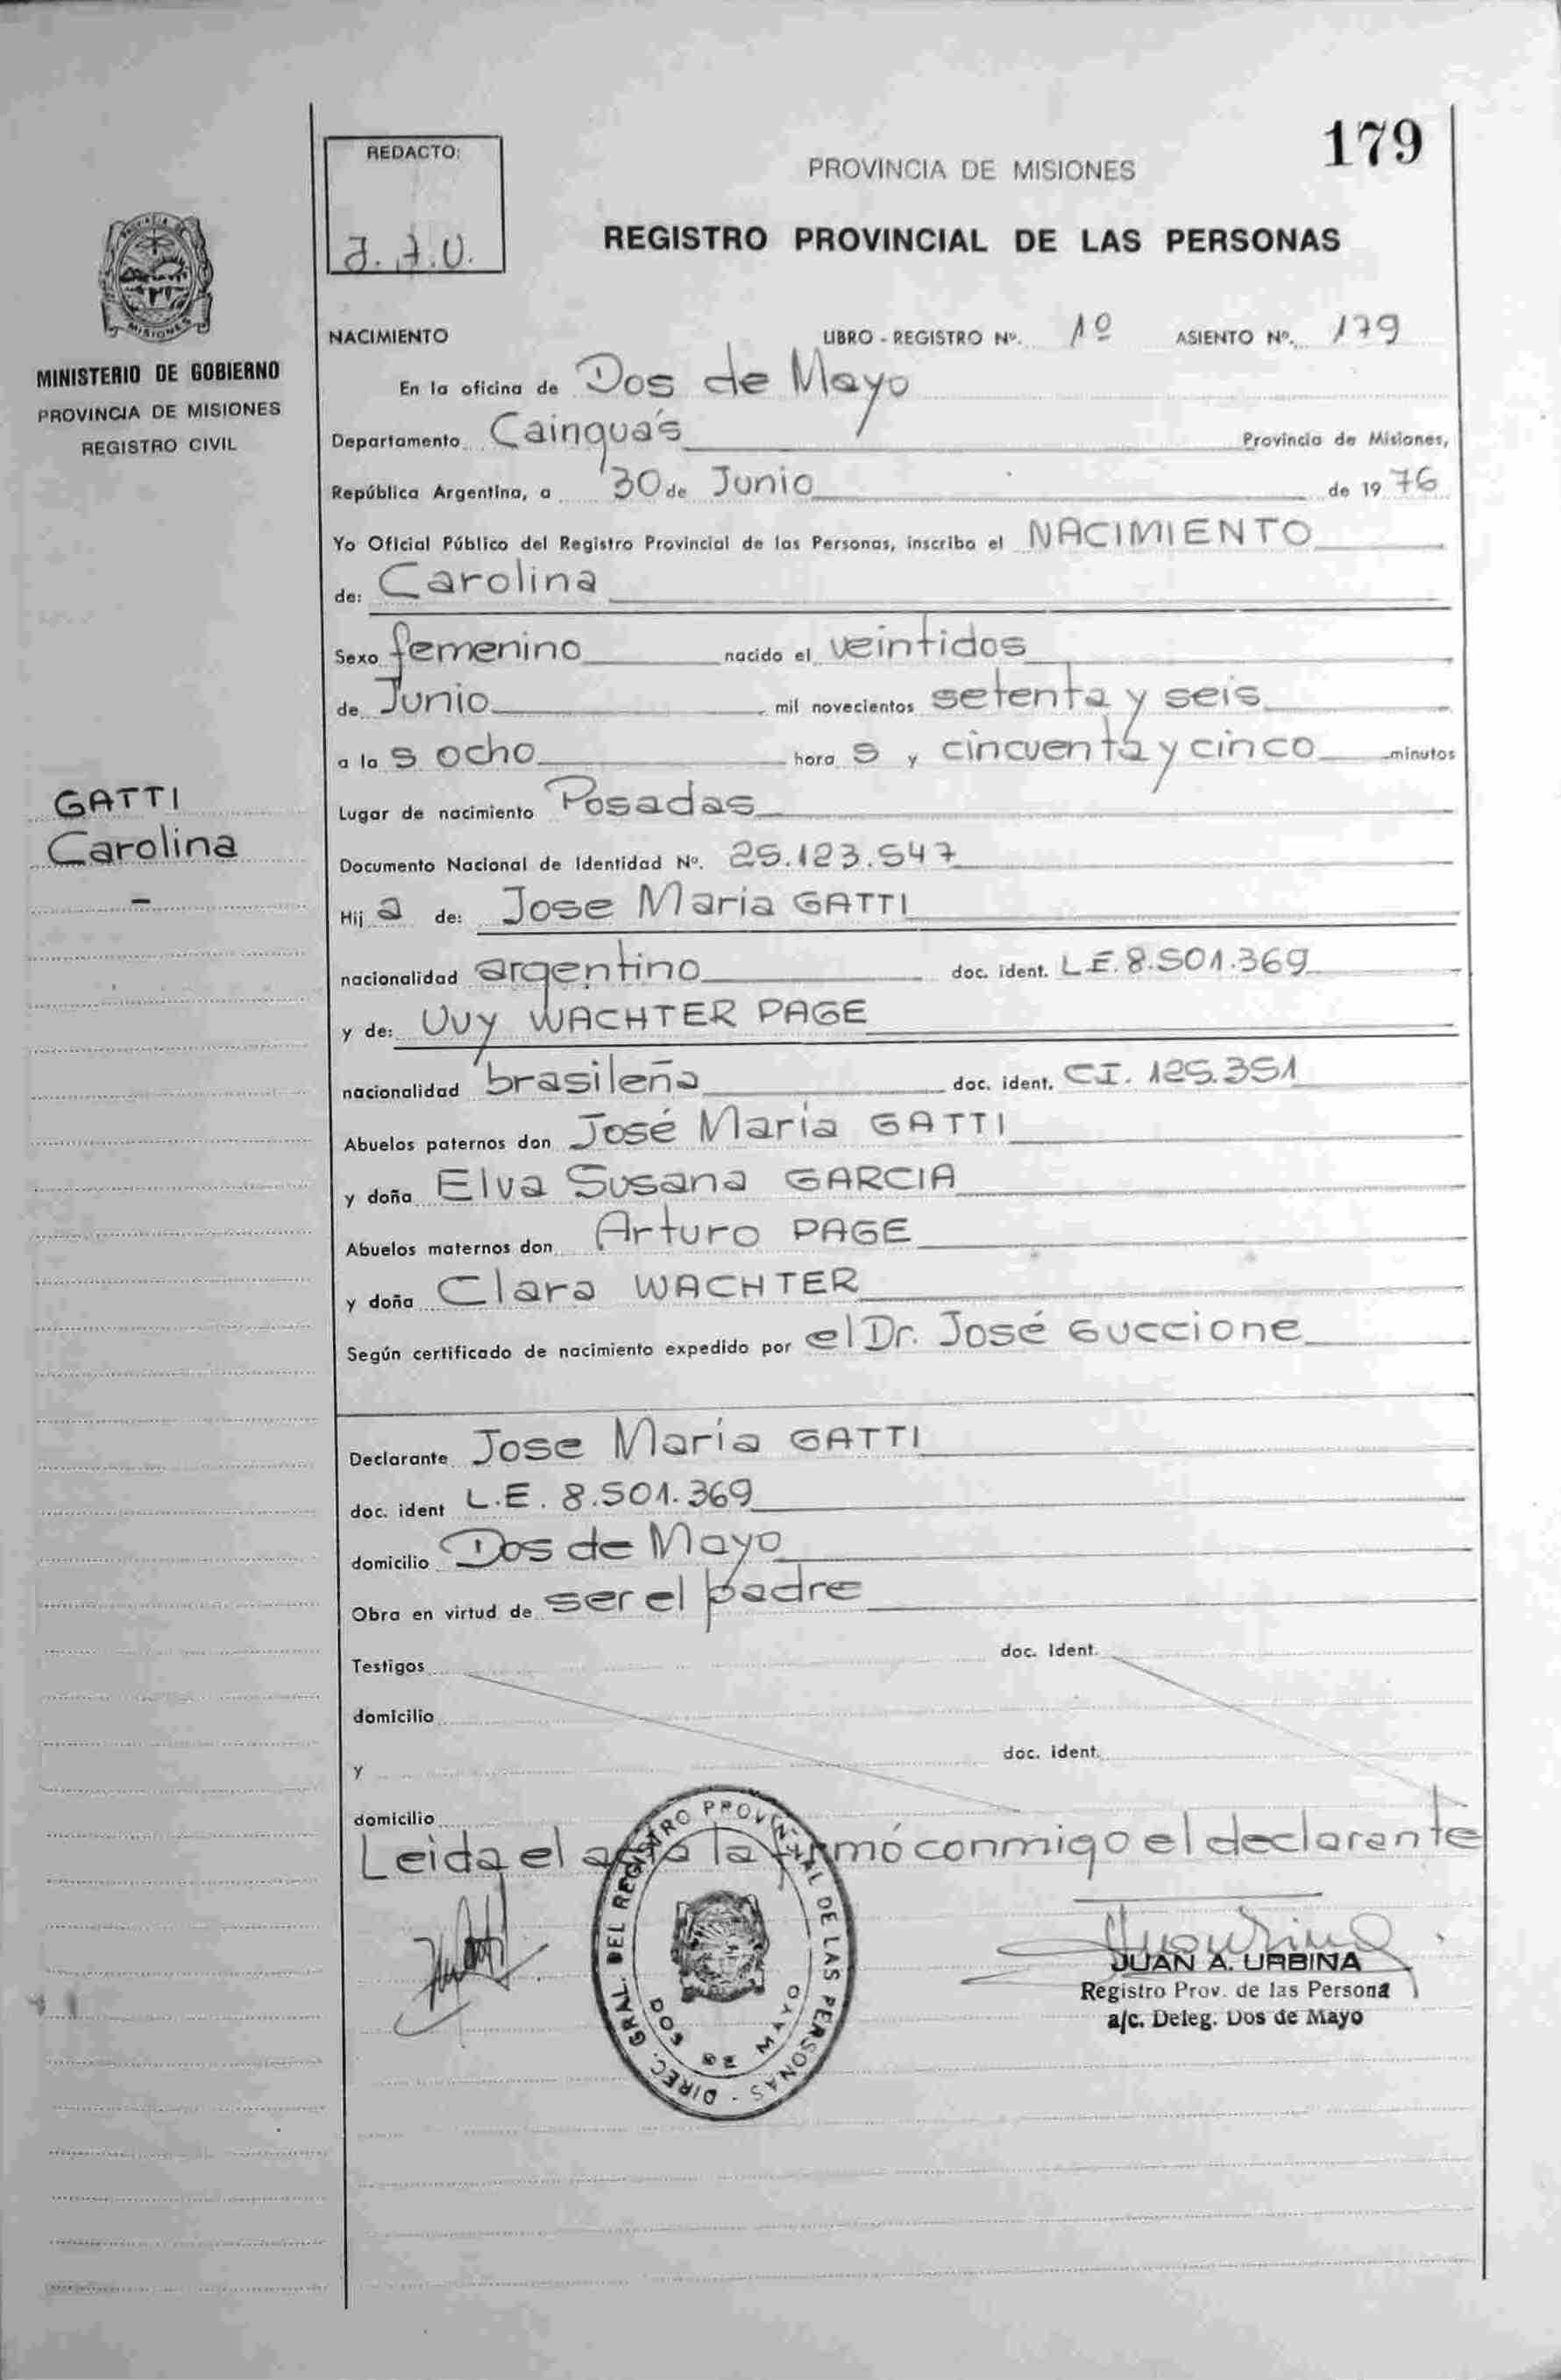 179
REDACTO:
J.A.U.
PROVINCIA DE MISIONES
REGISTRO PROVINCIAL DE LAS PERSONAS
MISIONES
MINISTERIO DE GOBIERNO
PROVINCIA DE MISIONES
REGISTRO CIVIL
GATTI
Carolina
NACIMIENTO LIBRO - REGISTRO Nº. 1º ASIENTO Nº. 179
En la oficina de Dos de Mayo
Departamento Cainguás Provincia de Misiones,
República Argentina, a 30 de Junio de 1976
Yo Oficial Público del Registro Provincial de las Personas, inscribo el NACIMIENTO
de: Carolina
Sexo femenino nacido el veintidos
de Junio mil novecientos setenta y seis
a las ocho horas y cincuenta y cinco minutos
Lugar de nacimiento Posadas
Documento Nacional de Identidad Nº. 25.123.547
Hija de: Jose Maria GATTI
nacionalidad argentino doc. ident. L.E. 8.501.369
y de: Uvy WACHTER PAGE
nacionalidad brasileña doc. ident. CI. 125.351
Abuelos paternos don José María GATTI
y doña Elva Susana GARCIA
Abuelos maternos don Arturo PAGE
y doña Clara WACHTER
Según certificado de nacimiento expedido por el Dr. José Guccione
Declarante Jose María GATTI
doc. ident L.E. 8.501.369
domicilio Dos de Mayo
Obra en virtud de ser el padre
Testigos doc. ident.
domicilio
y doc. ident.
domicilio
Leida el acta la firmó conmigo el declarante
DIREC. GRAL. DEL REGISTRO PROVINCIAL DE LAS PERSONAS -
DOS DE MAYO
JUAN A. URBINA
Registro Prov. de las Persona
a/c. Deleg. Dos de Mayo